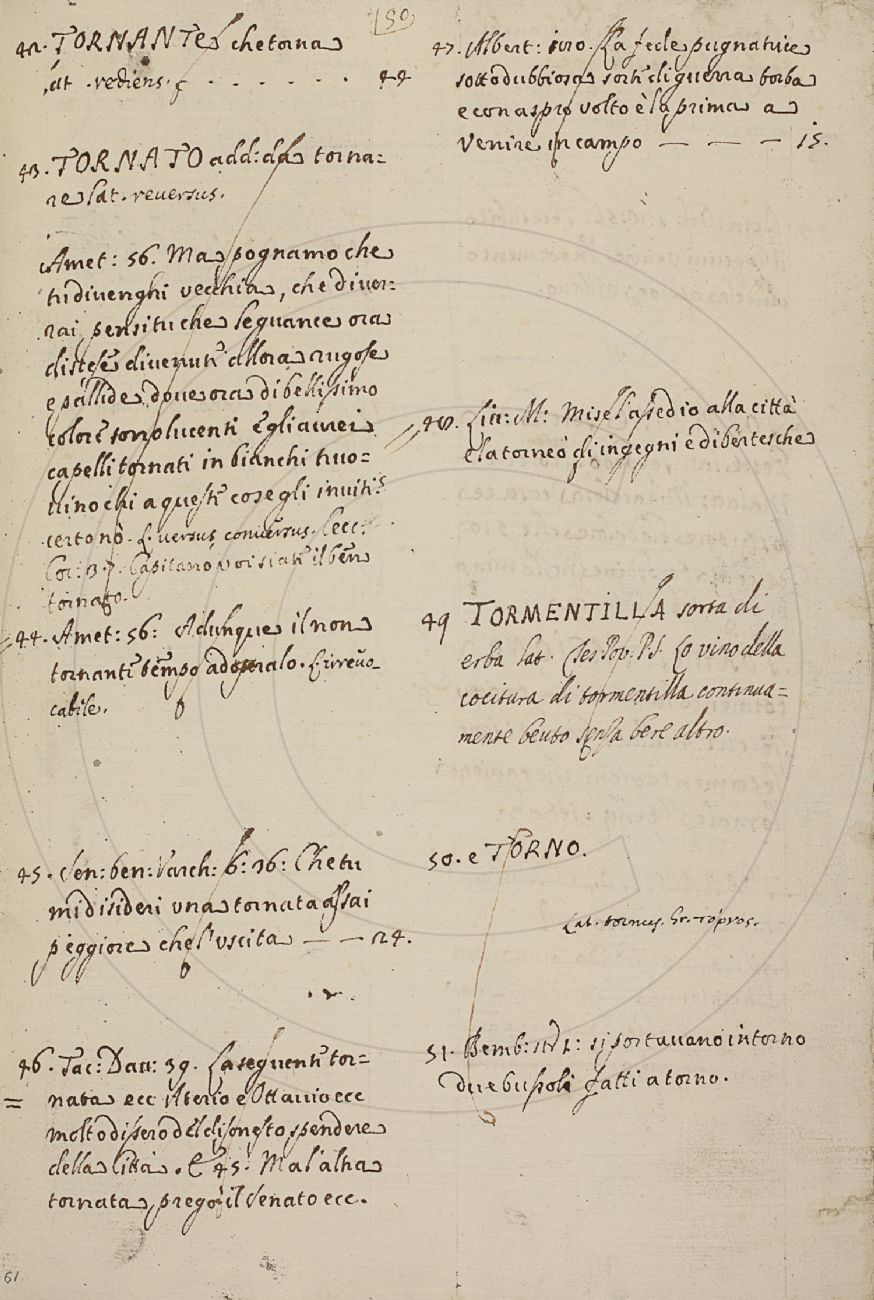 180
42. TORNANTE che torna
lat. rediens. - - - - - - 44
43. TORNATO add: da torna=
re lat. reversus.
Amet: 56. Ma pognamo che
tu divenghi vecchia, che diver=
rai, pensi tu che le guance ora
distese divenuti allora rugose
e pallide dove ora di bellissimo
colore sono lucenti e gli aurei
capelli tornati in bianchi niuo=
uino chi a questi cose gli inviti?
certo nò. L. versus, conversus.
Capitano voi siati il ben
tornato.
44. Amet: 56: Adunque il non
tornanti tempo adopralo. L. irrevo_
cabile.
45. Sen: ben: Varch: 6: 26: Che tu
mi disideri una tornata assai
peggiore che l'uscita — — 24.
46. Tac: Dav: 39. La seguenti tor=
nata ecc Aterio e Ottavio ecc
molto dissero del disonesto spendere
della Città. E 45. Ma l'altra
tornata, pregò il Senato ecc.
61
47. Albert: La fede pugnatrice
sotto dubbiosa sorti di guerra torba
e con aspro volto è la prima a
venire in campo — — — 15.
48. Liv: M: Mise l'assedio alla città
e la torneò di ingegni e di bertesche
49 TORMENTILLA sorta di
erba lat. Tes. Pov. P.S. Lo vino della
cocitura di tormentilla continua=
mente beuto senza bere altro.
50. e TORNO.
Lat. tornus. Gr. τόρνος.
51. Bemb: si portavano intorno
due bussoli fatti a torno.